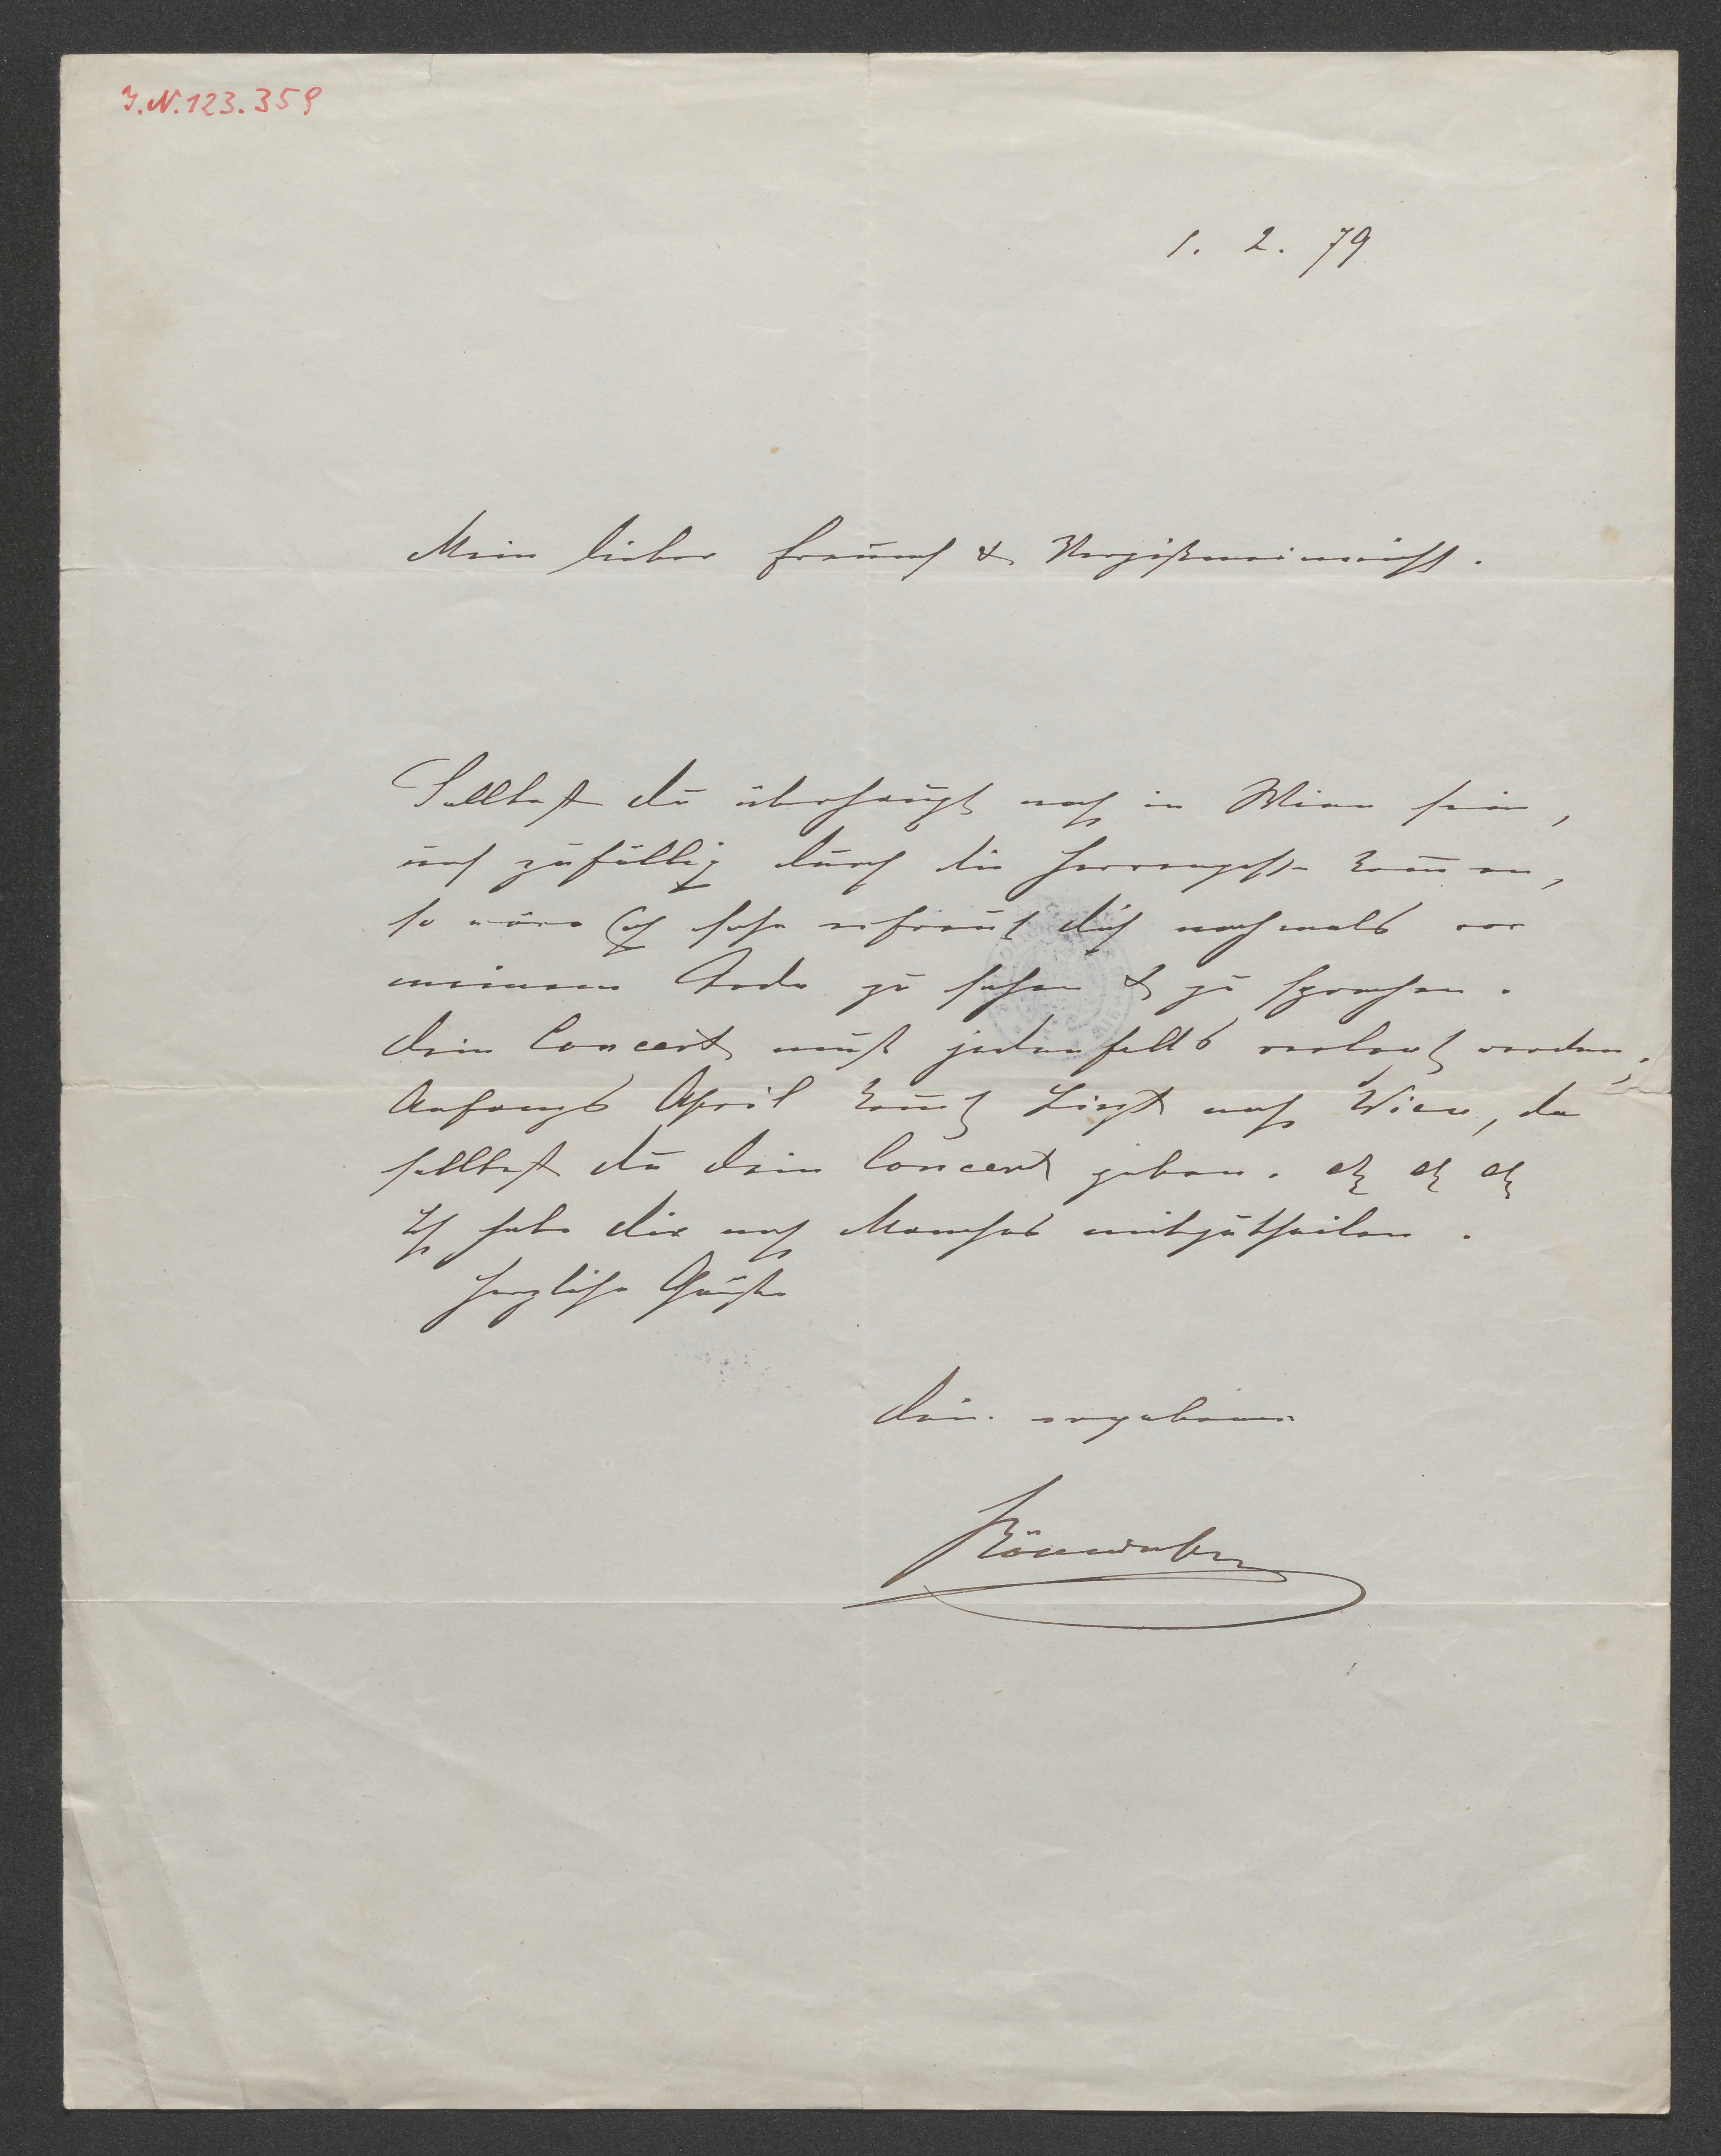 I.N. 123.359
1. 2. 79
Mein lieber Freund & Vergißmeinnicht.
Solltest du überhaupt noch in Wien sein,
und zufällig durch die Herrengasse kom̅en,
so wäre ich sehr erfreut dich nochmals vor
meinem Ende zu sehen & zu sprechen.
Dein Concert muß jedenfalls verlegt werden;
Anfangs April kom̅t Liszt nach Wien, da
solltest du dein Concert geben. etz etz etz
Ich habe dir noch Manches mitzutheilen.
Herzliche Grüße
Dein ergebener